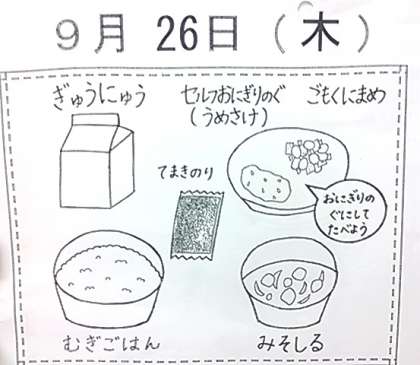 9月 26日 (木)
ぎゅうにゅう
セルフおにぎりのぐ
(うめさけ)
ごもくにまめ
てまきのり
おにぎりの
ぐにして
たべよう
むぎごはん
みそしる